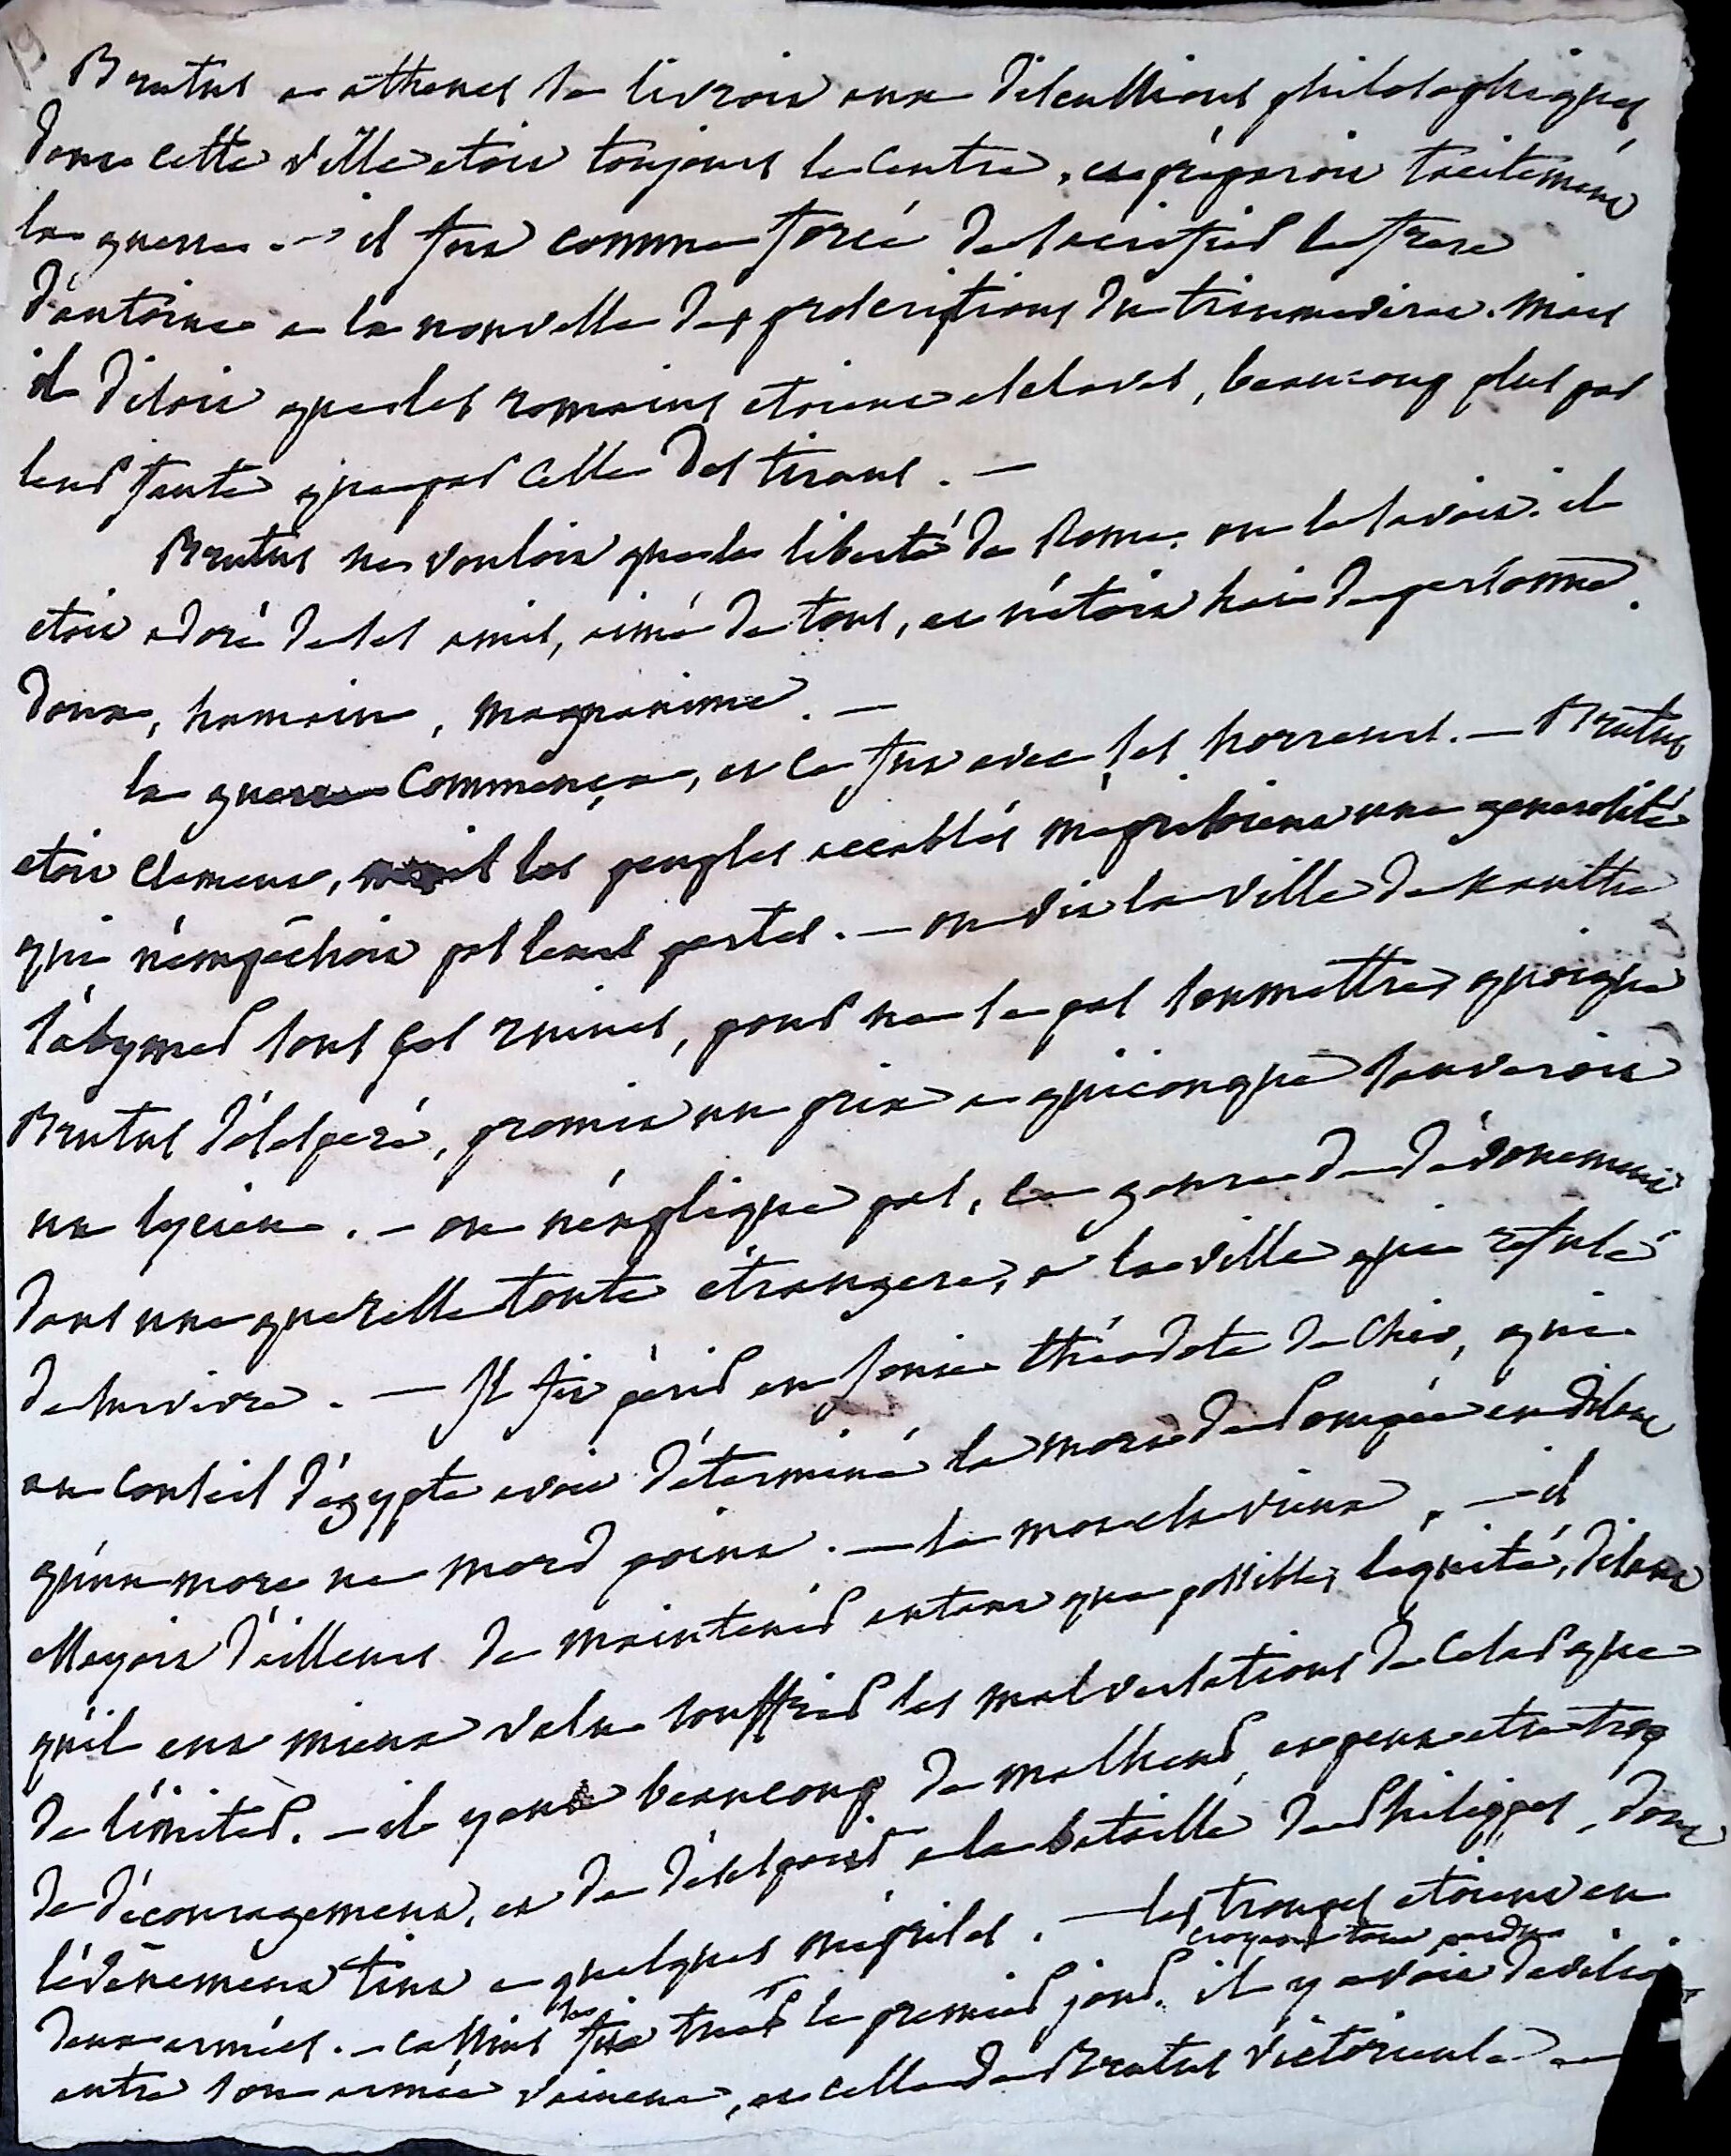 Brutus a athenes se livroit aux discussions philosophiques
dont cette ville etoit toujours le centre, et préparoit tacitement
la guerre. — il fut comme forcé de sacrifier le frere
d'antoine a la nouvelle des proscriptions du triumvirat. mais
il disoit que les romains etoient esclaves, beaucoup plus par
leur faute que par celle des tirans. —
Brutus ne vouloit que la liberté de Rome, on le savoit. il
etoit adoré de ses amis, aimé de tous, et n'étoit haï de personne.
doux, humain, magnanime. —
la guerre commença, et ce fut avec ses horreurs. — Brutus
etoit clement, mais les peuples accablés méprisoient une generosité
qui n'empêchoit pas leurs pertes. — on vit la ville de Xanthe
s'abymer sous ses ruines, pour ne se pas soumettre, quoique
Brutus désespéré, promit un prix a quiconque sauveroit
un lycien. — on n'explique pas, ce genre de dévouement
dans une querelle toute étrangere, a la ville qui refusé
de survivre. — Il fit périr en Ionie théodote de Chio, qui
au conseil d'égypte avoit déterminé la mort de Pompée en disant
qu'un mort ne mord point. — la mort vient. — il
essayoit d'ailleurs de maintenir autant que possible, l'équité, disant
qu'il eut mieux valu souffrir les malversations de César que
de l'imiter. — il y eut beaucoup de malheur, et peut etre trop
de découragement, et de désespoir a la bataille de Philippes, dont
l'événement tint a quelques méprises. — les troupes etoient en
deux armées. — cassius se tua le premier jour. croyant tout perdu il y avoit
entre son armée vaincue, et celle de Brutus victorieuse